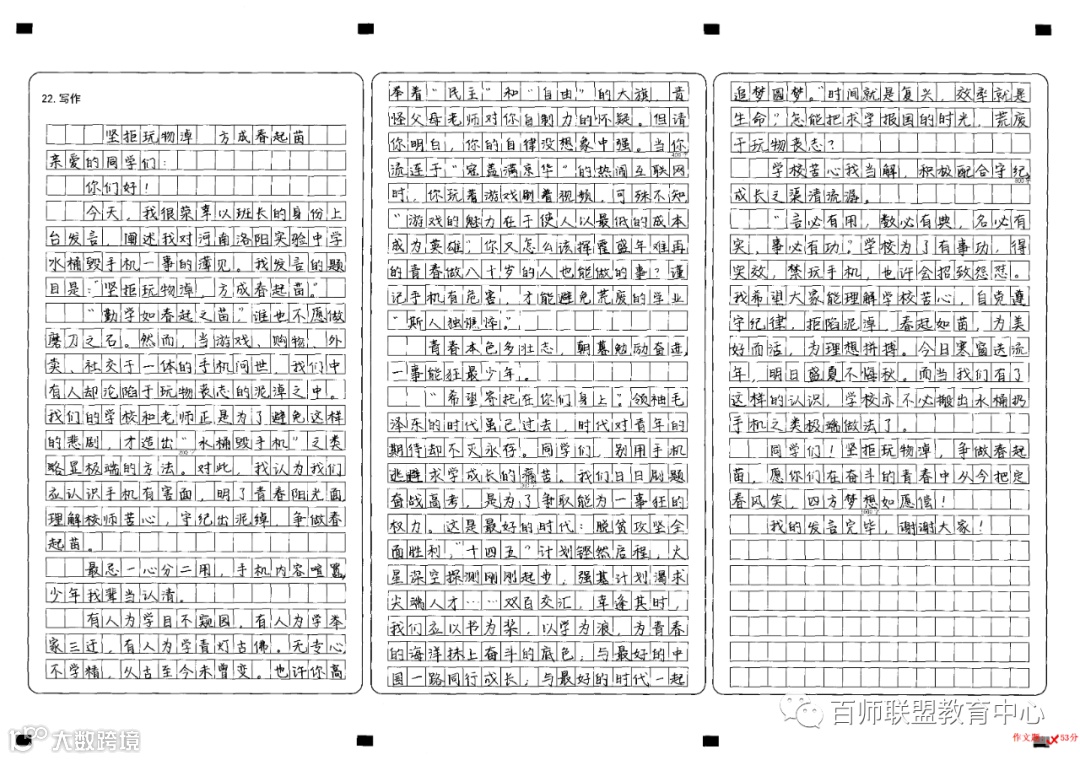 22. 写作
坚拒玩物淖　方成春起苗
亲爱的同学们：
你们好！
今天，我很荣幸以班长的身份上
台发言，阐述我对河南洛阳实验中学
水桶毁手机一事的薄见。我发言的题
目是：“坚拒玩物淖，方成春起苗。”
“勤学如春起之苗”，谁也不愿做
磨刀之石。然而，当游戏、购物、外
卖、社交于一体的手机问世，我们中
有人却沦陷于玩物丧志的泥淖之中。
我们的学校和老师正是为了避免这样
的悲剧，才造出“水桶毁手机”之类
略显极端的方法。对此，我认为我们
应认识手机有害面，明了青春阳光面
理解校师苦心，守纪出泥淖，争做春
起苗。
最忌一心分二用，手机内容喧嚣，
少年我辈当认清。
有人为学目不窥园，有人为学举
家三迁，有人为学青灯古佛。无专心
不学精，从古至今未曾变。也许你高
举着“民主”和“自由”的大旗，责
怪父母老师对你自制力的怀疑。但请
你明白，你的自律没想象中强。当你
流连于“冠盖满京华”的热闹互联网
时，你玩着游戏刷着视频，可殊不知
“游戏的魅力在于使人以最低的成本
成为英雄”，你又怎么该挥霍盛年难再
的青春做八十岁的人也能做的事？谨
记手机有危害，才能避免荒废的学业
“斯人独憔悴。”
青春本色多壮志，朝暮勉励奋进，
一事能狂最少年。
“希望寄托在你们身上”，领袖毛
泽东的时代虽已过去，时代对青年的
期待却不灭永存。同学们，别用手机
逃避求学成长的痛苦。我们日日刷题
奋战高考，是为了争取能为一事狂的
权力。这是最好的时代：脱贫攻坚全
面胜利，“十四五”计划铿然启程，火
星深空探测刚刚起步，强基计划渴求
尖端人才……双百交汇，幸逢其时，
我们应以书为桨，以学为浪，为青春
的海洋抹上奋斗的底色，与最好的中
国一路同行成长，与最好的时代一起
追梦圆梦。“时间就是复兴，效率就是
生命”，怎能把求学报国的时光，荒废
于玩物丧志？
学校苦心我当解，积极配合守纪，
成长之渠清流潺。
“言必有用，数必有典，名必有
实，事必有功。”学校为了有事功，得
实效，禁玩手机，也许会招致怨怼。
我希望大家能理解学校苦心，自克遵
守纪律，拒陷泥淖，春起如苗，为美
好而活，为理想拼搏。今日寒窗送流
年，明日盛夏不悔秋。而当我们有了
这样的认识，学校亦不必搬出水桶扔
手机之类极端做法了。
同学们！坚拒玩物淖，争做春起
苗，愿你们在奋斗的青春中从今把定
春风笑，四方梦想如愿偿！
我的发言完毕，谢谢大家！
百师联盟教育中心
大数跨境
作文题 53分